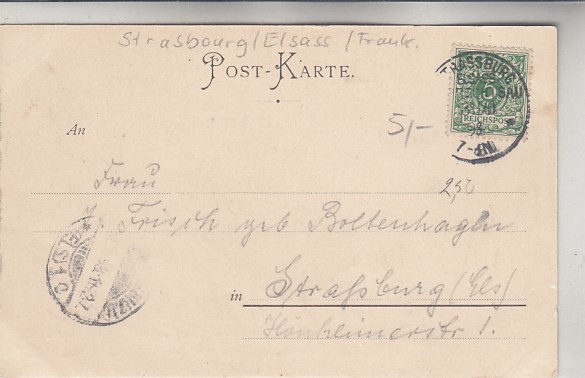 Strasbourg/Elsass /Frank.
POST-KARTE.
STRASSBURG
5
REICHSPOST
98
7-8N
5/-
An
Frau
2,50
Frisch geb Boltenhagen
in Straßburg (Els)
Hönheimerstr 1.